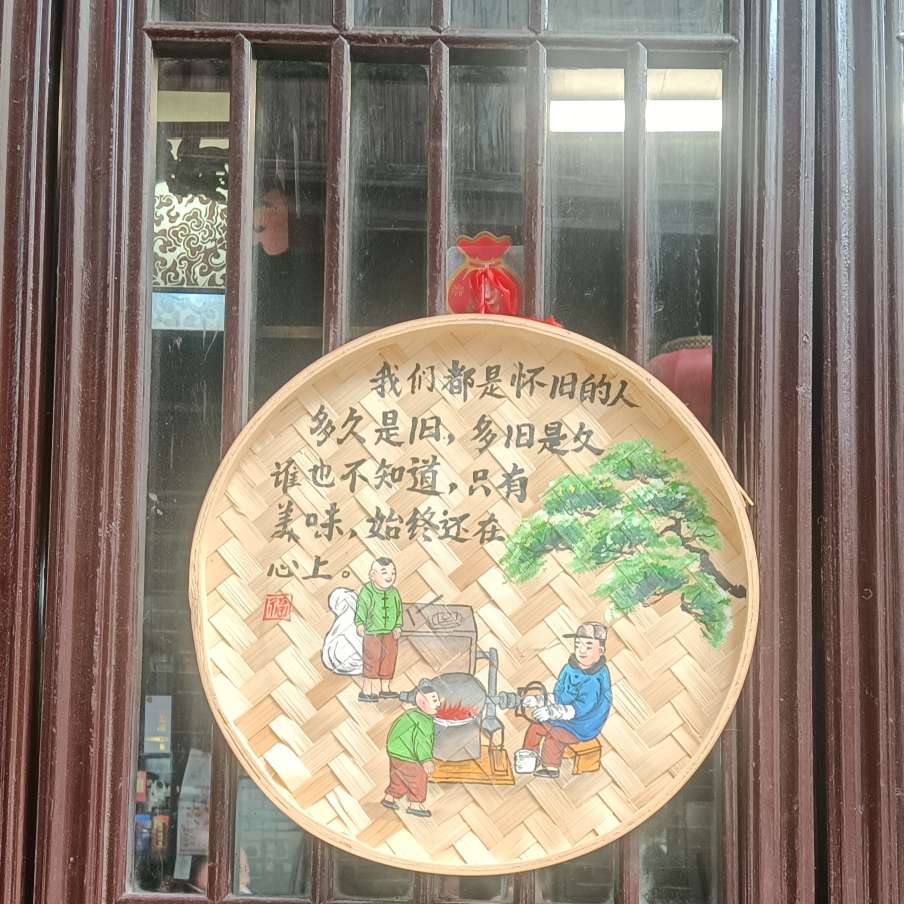 我们都是怀旧的人
多久是旧，多旧是久
谁也不知道，只有
美味，始终还在
心上。